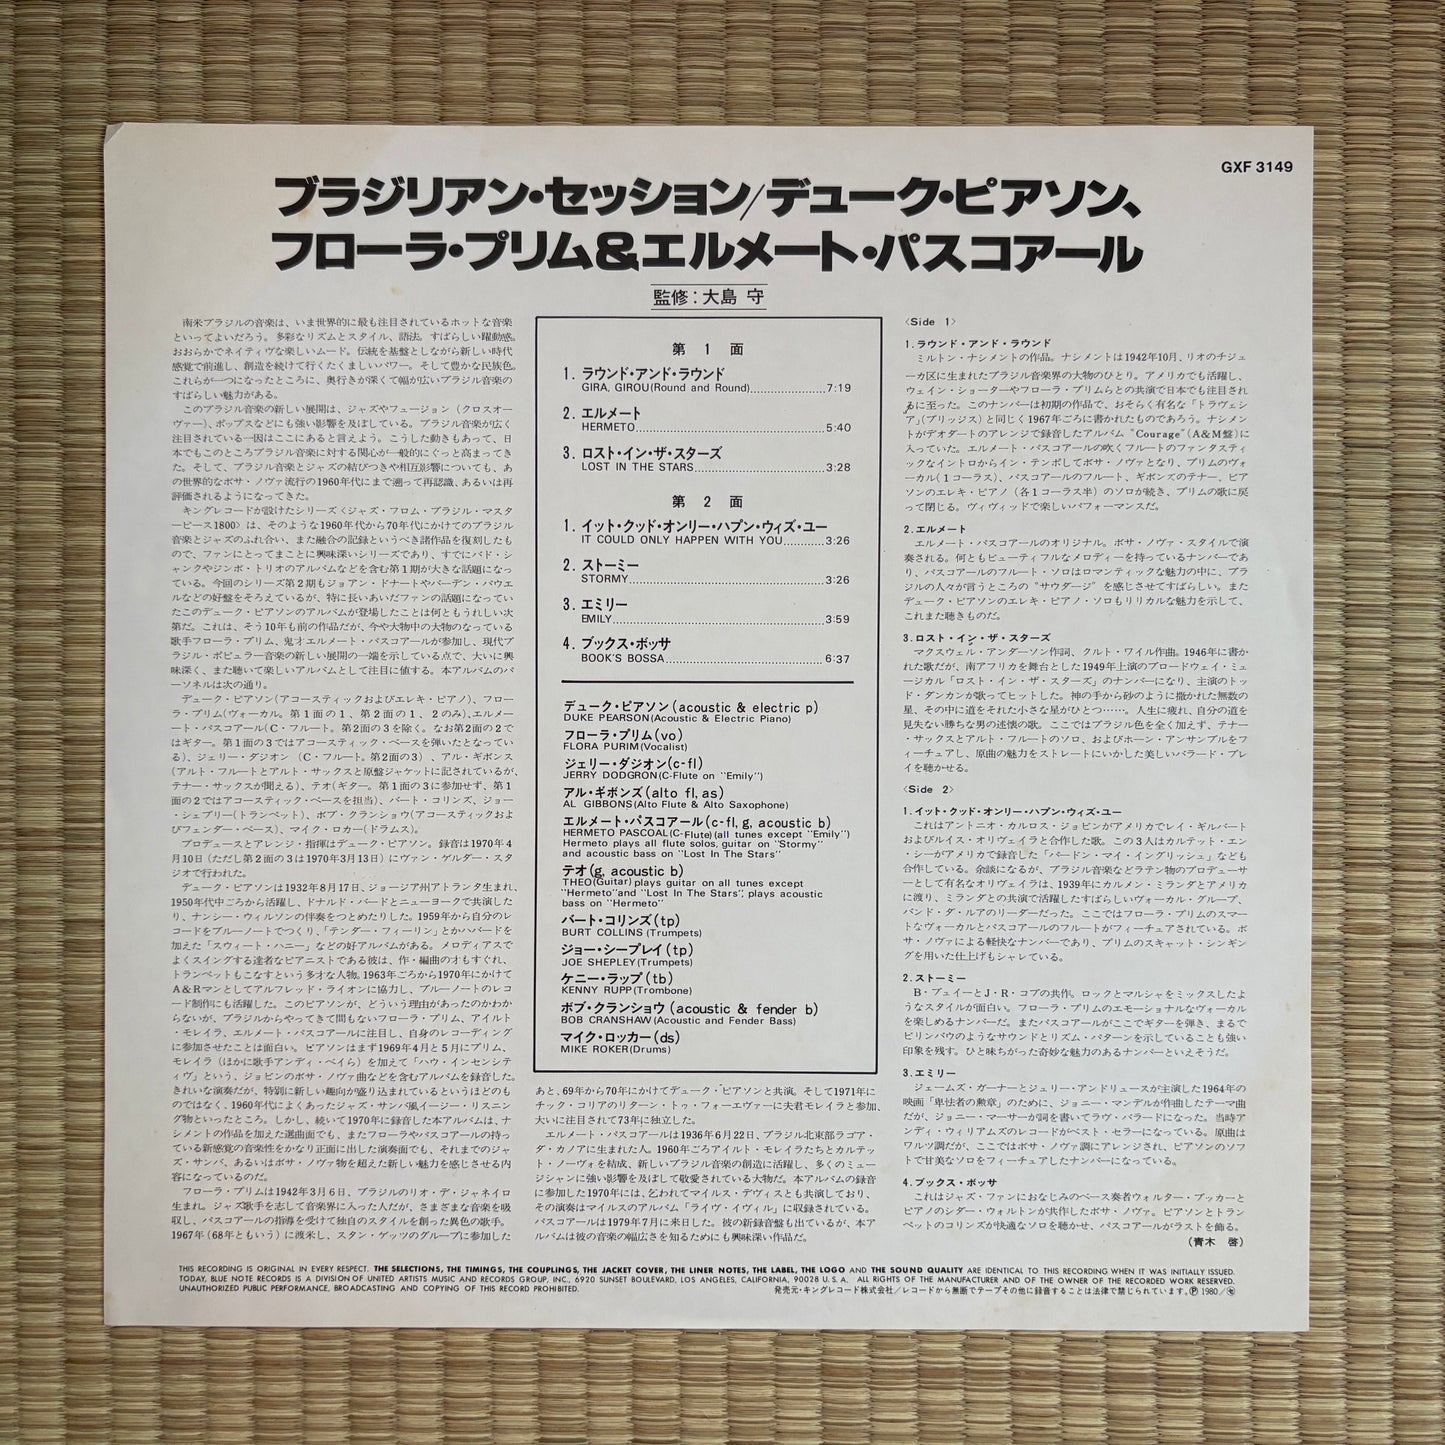 GXF 3149
ブラジリアン・セッション/デューク・ピアソン、
フローラ・プリム&エルメート・パスコアール
監修:大島 守
南米ブラジルの音楽は、いま世界的に最も注目されているホットな音楽
といってよいだろう。多彩なリズムとスタイル、語法。すばらしい躍動感。
おおらかでネイティヴな楽しいムード。伝統を基盤としながら新しい時代
感覚で前進し、創造を続けて行くたくましいパワー。そして豊かな民族色。
これらが一つになったところに、奥行きが深くて幅が広いブラジル音楽の
すばらしい魅力がある。
このブラジル音楽の新しい展開は、ジャズやフュージョン(クロスオー
ヴァー)、ポップスなどにも強い影響を及ぼしている。ブラジル音楽が広く
注目されている一因はここにあると言えよう。こうした動きもあって、日
本でもこのところブラジル音楽に対する関心が一般的にぐっと高まってき
た。そして、ブラジル音楽とジャズの結びつきや相互影響についても、あ
の世界的なボサ・ノヴァ流行の1960年代にまで遡って再認識、あるいは再
評価されるようになってきた。
キングレコードが設けたシリーズ〈ジャズ・フロム・ブラジル・マスタ
ーピース1800〉は、そのような1960年代から70年代にかけてのブラジル
音楽とジャズのふれ合い、また融合の記録というべき諸作品を復刻したも
ので、ファンにとってまことに興味深いシリーズであり、すでにバド・シ
ャンクやジンボ・トリオのアルバムなどを含む第1期が大きな話題になっ
ている。今回のシリーズ第2期もジョアン・ドナートやバーデン・パウエ
ルなどの好盤をそろえているが、特に長いあいだファンの話題になってい
たこのデューク・ピアソンのアルバムが登場したことは何ともうれしい次
第だ。これは、そう10年も前の作品だが、今や大物中の大物のなっている
歌手フローラ・プリム、鬼才エルメート・パスコアールが参加し、現代ブ
ラジル・ポピュラー音楽の新しい展開の一端を示している点で、大いに興
味深く、また聴いて楽しいアルバムとして注目に値する。本アルバムのパ
ーソネルは次の通り。
デューク・ピアソン(アコースティックおよびエレキ・ピアノ)、フロー
ラ・プリム(ヴォーカル。第1面の1、第2面の1、2のみ)、エルメー
ト・パスコアール(C・フルート。第2面の3を除く。なお第2面の2で
はギター。第1面の3ではアコースティック・ベースを弾いたとなってい
る)、ジェリー・ダジオン(C・フルート。第2面の3)、アル・ギボンス
(アルト・フルートとアルト・サックスと原盤ジャケットに記されているが、
テナー・サックスが聞える)、テオ(ギター。第1面の3に参加せず、第1
面の2ではアコースティック・ベースを担当)、バート・コリンズ、ジョー
・シェプリー(トランペット)、ボブ・クランショウ(アコースティックおよ
びフェンダー・ベース)、マイク・ロカー(ドラムス)。
プロデュースとアレンジ・指揮はデューク・ピアソン。録音は1970年4
月10日(ただし第2面の3は1970年3月13日)にヴァン・ゲルダー・スタ
ジオで行われた。
デューク・ピアソンは1932年8月17日、ジョージア州アトランタ生まれ、
1950年代中ごろから活躍し、ドナルド・バードとニューヨークで共演した
り、ナンシー・ウィルソンの伴奏をつとめたりした。1959年から自分のレ
コードをブルーノートでつくり、「テンダー・フィーリン」とかハバードを
加えた「スウィート・ハニー」などの好アルバムがある。メロディアスで
よくスイングする達者なピアニストである彼は、作・編曲の才もすぐれ、
トランペットもこなすという多才な人物。1963年ごろから1970年にかけて
A&Rマンとしてアルフレッド・ライオンに協力し、ブルーノートのレコ
ード制作にも活躍した。このピアソンが、どういう理由があったのかわか
らないが、ブラジルからやってきて間もないフローラ・プリム、アイルト
・モレイラ、エルメート・パスコアールに注目し、自身のレコーディング
に参加させたことは面白い。ピアソンはまず1969年4月と5月にプリム、
モレイラ(ほかに歌手アンディ・ベイら)を加えて「ハウ・インセンシティ
ヴ」という、ジョビンのボサ・ノヴァ曲などを含むアルバムを録音した。
きれいな演奏だが、特別に新しい趣向が盛り込まれているというほどのも
のではなく、1960年代によくあったジャズ・サンバ風イージー・リスニン
グ物といったところ。しかし、続いて1970年に録音した本アルバムは、ナ
シメントの作品を加えた選曲面でも、またフローラやパスコアールの持っ
ている新感覚の音楽性をかなり正面に出した演奏面でも、それまでのジャ
ズ・サンバ、あるいはボサ・ノヴァ物を超えた新しい魅力を感じさせる内
容になっているのだ。
フローラ・プリムは1942年3月6日、ブラジルのリオ・デ・ジャネイロ
生まれ。ジャズ歌手を志して音楽界に入った人だが、さまざまな音楽を吸
収し、パスコアールの指導を受けて独自のスタイルを創った異色の歌手。
1967年(68年ともいう)に渡米し、スタン・ゲッツのグループに参加した
第1面
1. ラウンド・アンド・ラウンド
GIRA, GIROU(Round and Round)..................7:19
2. エルメート
HERMETO..................5:40
3. ロスト・イン・ザ・スターズ
LOST IN THE STARS..................3:28
第2面
1. イット・クッド・オンリー・ハプン・ウィズ・ユー
IT COULD ONLY HAPPEN WITH YOU............3:26
2. ストーミー
STORMY..................3:26
3. エミリー
EMILY..................3:59
4. ブックス・ボッサ
BOOK'S BOSSA..................6:37
デューク・ピアソン(acoustic & electric p)
DUKE PEARSON(Acoustic & Electric Piano)
フローラ・プリム(vo)
FLORA PURIM(Vocalist)
ジェリー・ダジオン(c-fl)
JERRY DODGRON(C-Flute on "Emily")
アル・ギボンズ(alto fl, as)
AL GIBBONS(Alto Flute & Alto Saxophone)
エルメート・パスコアール(c-fl, g, acoustic b)
HERMETO PASCOAL(C-Flute)(all tunes except "Emily")
Hermeto plays all flute solos, guitar on "Stormy"
and acoustic bass on "Lost In The Stars"
テオ(g, acoustic b)
THEO(Guitar) plays guitar on all tunes except
"Hermeto"and "Lost In The Stars", plays acoustic
bass on "Hermeto"
バート・コリンズ(tp)
BURT COLLINS(Trumpets)
ジョー・シープレイ(tp)
JOE SHEPLEY(Trumpets)
ケニー・ラップ(tb)
KENNY RUPP(Trombone)
ボブ・クランショウ(acoustic & fender b)
BOB CRANSHAW(Acoustic and Fender Bass)
マイク・ロッカー(ds)
MIKE ROKER(Drums)
あと、69年から70年にかけてデューク・ピアソンと共演。そして1971年に
チック・コリアのリターン・トゥ・フォーエヴァーに夫君モレイラと参加、
大いに注目されて73年に独立した。
エルメート・パスコアールは1936年6月22日、ブラジル北東部ラゴア・
ダ・カノアに生まれた人。1960年ごろアイルト・モレイラたちとカルテッ
ト・ノーヴォを結成、新しいブラジル音楽の創造に活躍し、多くのミュー
ジシャンに強い影響を及ぼして敬愛されている大物だ。本アルバムの録音
に参加した1970年には、乞われてマイルス・デヴィスとも共演しており、
その演奏はマイルスのアルバム「ライヴ・イヴィル」に収録されている。
パスコアールは1979年7月に来日した。彼の新録音盤も出ているが、本ア
ルバムは彼の音楽の幅広さを知るためにも興味深い作品だ。
〈Side 1〉
1. ラウンド・アンド・ラウンド
ミルトン・ナシメントの作品。ナシメントは1942年10月、リオのチジュ
ーカ区に生まれたブラジル音楽界の大物のひとり。アメリカでも活躍し、
ウェイン・ショーターやフローラ・プリムらとの共演で日本でも注目され
るに至った。このナンバーは初期の作品で、おそらく有名な「トラヴェシ
ア」(ブリッジス)と同じく1967年ごろに書かれたものであろう。ナシメン
トがデオダートのアレンジで録音したアルバム "Courage"(A&M盤)に
入っていた。エルメート・パスコアールの吹くフルートのファンタスティ
ックなイントロからイン・テンポしてボサ・ノヴァとなり、プリムのヴォ
ーカル(1コーラス)、パスコアールのフルート、ギボンズのテナー、ピア
ソンのエレキ・ピアノ(各1コーラス半)のソロが続き、プリムの歌に戻
って閉じる。ヴィヴィッドで楽しいパフォーマンスだ。
2. エルメート
エルメート・パスコアールのオリジナル。ボサ・ノヴァ・スタイルで演
奏される。何ともビューティフルなメロディーを持っているナンバーであ
り、パスコアールのフルート・ソロはロマンティックな魅力の中に、ブラ
ジルの人々が言うところの"サウダージ"を感じさせてすばらしい。また
デューク・ピアソンのエレキ・ピアノ・ソロもリリカルな魅力を示して、
これまた聴きものだ。
3. ロスト・イン・ザ・スターズ
マクスウェル・アンダーソン作詞、クルト・ワイル作曲。1946年に書か
れた歌だが、南アフリカを舞台とした1949年上演のブロードウェイ・ミュ
ージカル「ロスト・イン・ザ・スターズ」のナンバーになり、主演のトッ
ド・ダンカンが歌ってヒットした。神の手から砂のように撒かれた無数の
星、その中に道をそれた小さな星がひとつ……。人生に疲れ、自分の道を
見失ない勝ちな男の述懐の歌。ここではブラジル色を全く加えず、テナー
・サックスとアルト・フルートのソロ、およびホーン・アンサンブルをフ
ィーチュアし、原曲の魅力をストレートにいかした美しいバラード・プレ
イを聴かせる。
〈Side 2〉
1. イット・クッド・オンリー・ハプン・ウィズ・ユー
これはアントニオ・カルロス・ジョビンがアメリカでレイ・ギルバート
およびルイス・オリヴェイラと合作した歌。この3人はカルテット・エン
・シーがアメリカで録音した「パードン・マイ・イングリッシュ」なども
合作している。余談になるが、ブラジル音楽などラテン物のプロデューサ
ーとして有名なオリヴェイラは、1939年にカルメン・ミランダとアメリカ
に渡り、ミランダとの共演で活躍したすばらしいヴォーカル・グループ、
バンド・ダ・ルアのリーダーだった。ここではフローラ・プリムのスマー
トなヴォーカルとパスコアールのフルートがフィーチュアされている。ボ
サ・ノヴァによる軽快なナンバーであり、プリムのスキャット・シンギン
グを用いた仕上げもシャレている。
2. ストーミー
B・ブュイーとJ・R・コブの共作。ロックとマルシャをミックスしたよ
うなスタイルが面白い。フローラ・プリムのエモーショナルなヴォーカル
を楽しめるナンバーだ。またパスコアールがここでギターを弾き、まるで
ビリンバウのようなサウンドとリズム・パターンを示していることも強い
印象を残す。ひと味ちがった奇妙な魅力のあるナンバーといえそうだ。
3. エミリー
ジェームズ・ガーナーとジュリー・アンドリュースが主演した1964年の
映画「卑怯者の勲章」のために、ジョニー・マンデルが作曲したテーマ曲
だが、ジョニー・マーサーが詞を書いてラヴ・バラードになった。当時ア
ンディ・ウィリアムズのレコードがベスト・セラーになっている。原曲は
ワルツ調だが、ここではボサ・ノヴァ調にアレンジされ、ピアソンのソフ
トで甘美なソロをフィーチュアしたナンバーになっている。
4. ブックス・ボッサ
これはジャズ・ファンにおなじみのベース奏者ウォルター・ブッカーと
ピアノのシダー・ウォルトンが共作したボサ・ノヴァ。ピアソンとトラン
ペットのコリンズが快適なソロを聴かせ、パスコアールがラストを飾る。
(青木 啓)
THIS RECORDING IS ORIGINAL IN EVERY RESPECT. THE SELECTIONS, THE TIMINGS, THE COUPLINGS, THE JACKET COVER, THE LINER NOTES, THE LABEL, THE LOGO AND THE SOUND QUALITY ARE IDENTICAL TO THIS RECORDING WHEN IT WAS INITIALLY ISSUED.
TODAY, BLUE NOTE RECORDS IS A DIVISION OF UNITED ARTISTS MUSIC AND RECORDS GROUP, INC., 6920 SUNSET BOULEVARD, LOS ANGELES, CALIFORNIA, 90028 U.S.A. ALL RIGHTS OF THE MANUFACTURER AND OF THE OWNER OF THE RECORDED WORK RESERVED.
UNAUTHORIZED PUBLIC PERFORMANCE, BROADCASTING AND COPYING OF THIS RECORD PROHIBITED.
発売元・キングレコード株式会社/レコードから無断でテープその他に録音することは法律で禁じられています。Ⓟ1980/